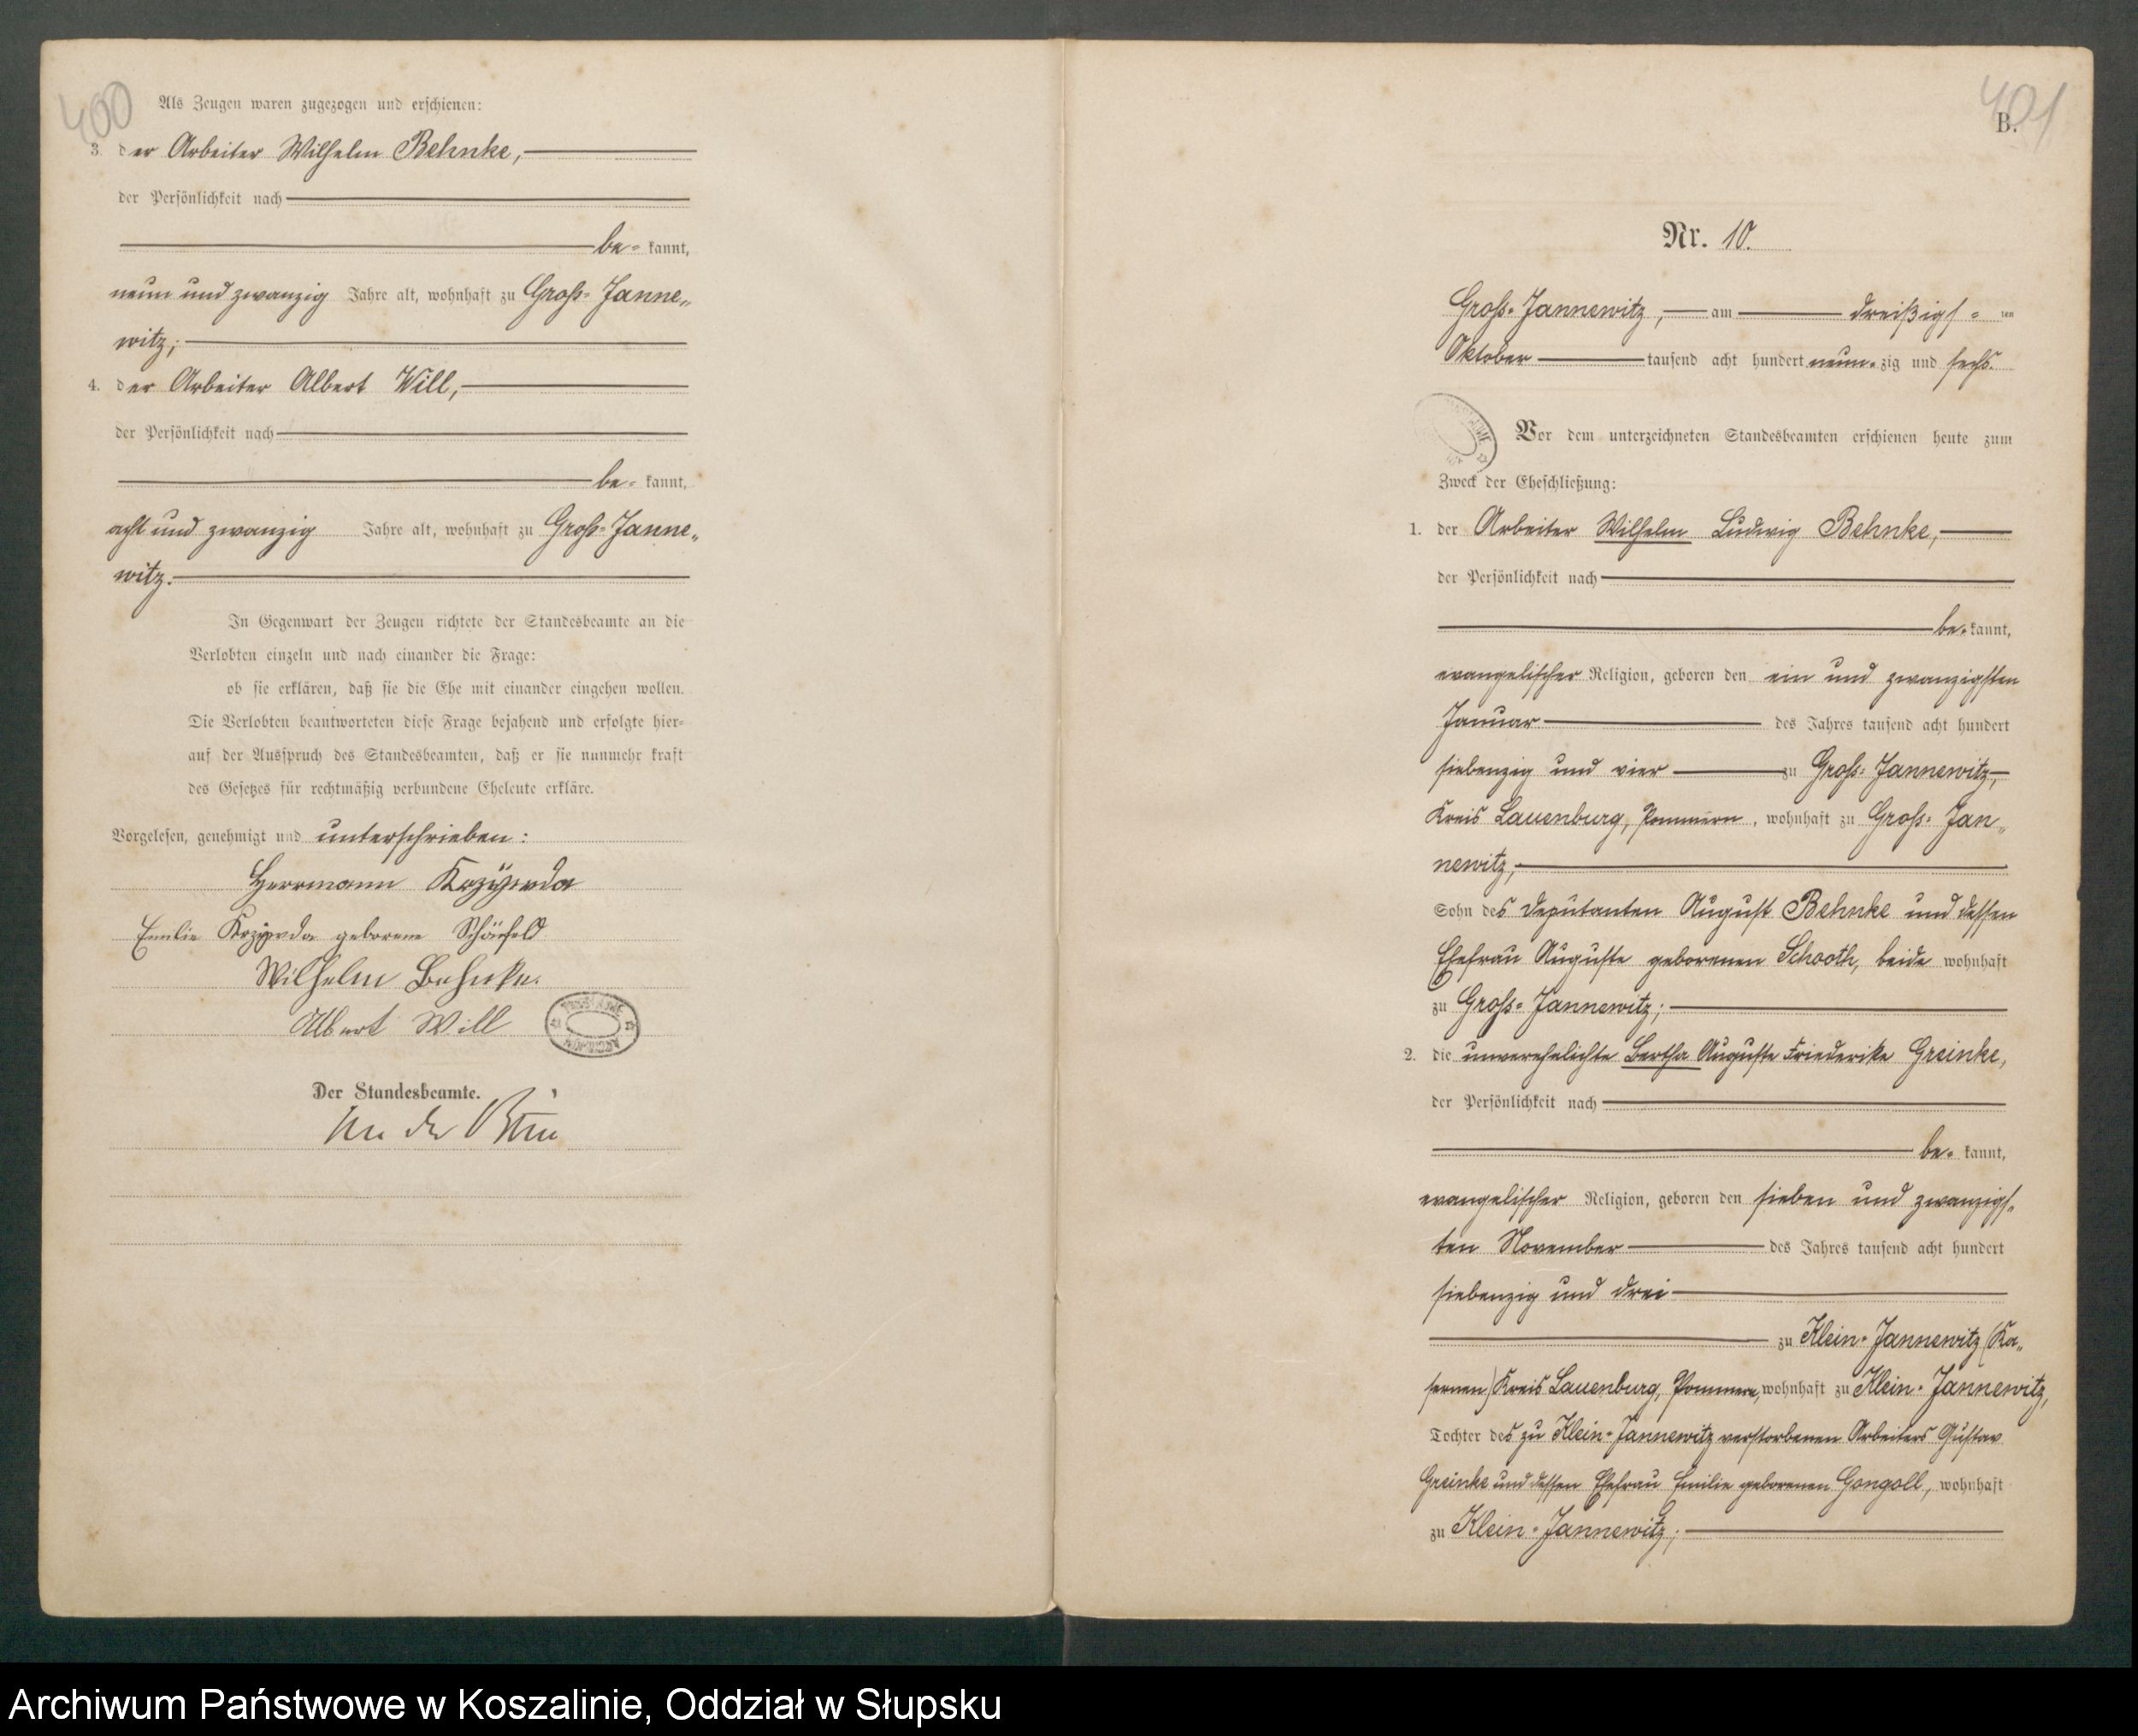 400
Als Zeugen waren zugezogen und erschienen:
3. der Arbeiter Wilhelm Behnke,
der Persönlichkeit nach
be- kannt,
neun und zwanzig Jahre alt, wohnhaft zu Groß-Janne-
witz;
4. der Arbeiter Albert Will,
der Persönlichkeit nach
be- kannt,
acht und zwanzig Jahre alt, wohnhaft zu Groß-Janne-
witz.
In Gegenwart der Zeugen richtete der Standesbeamte an die
Verlobten einzeln und nach einander die Frage:
ob sie erklären, daß sie die Ehe mit einander eingehen wollen.
Die Verlobten beantworteten diese Frage bejahend und erfolgte hier-
auf der Ausspruch des Standesbeamten, daß er sie nunmehr kraft
des Gesetzes für rechtmäßig verbundene Eheleute erkläre.
Vorgelesen, genehmigt und unterschrieben:
Herrmann
Emilie geborene
Wilhelm Behnke.
Albert Will
Der Standesbeamte.
401
B.
Nr. 10.
Groß-Jannewitz, am dreißigs- ten
Oktober tausend acht hundert neun-zig und sechs.
Vor dem unterzeichneten Standesbeamten erschienen heute zum
Zweck der Eheschließung:
1. der Arbeiter Wilhelm Ludwig Behnke,
der Persönlichkeit nach
be-kannt,
evangelischer Religion, geboren den ein und zwanzigsten
Januar des Jahres tausend acht hundert
siebenzig und vier zu Groß-Jannewitz,
Kreis Lauenburg, Pommern, wohnhaft zu Groß-Jan-
newitz,
Sohn des Deputanten August Behnke und dessen
Ehefrau Auguste geborenen Schooth, beide wohnhaft
zu Groß-Jannewitz;
2. die unverehelichte Bertha Auguste Friederike Greinke,
der Persönlichkeit nach
be- kannt,
evangelischer Religion, geboren den sieben und zwanzigs-
ten November des Jahres tausend acht hundert
siebenzig und drei
zu Klein-Jannewitz (Ka-
sernen) Kreis Lauenburg, Pommern, wohnhaft zu Klein-Jannewitz,
Tochter des zu Klein-Jannewitz verstorbenen Arbeiters Gustav
Greinke und dessen Ehefrau Emilie geborenen Gongoll, wohnhaft
zu Klein-Jannewitz;
Archiwum Państwowe w Koszalinie, Oddział w Słupsku